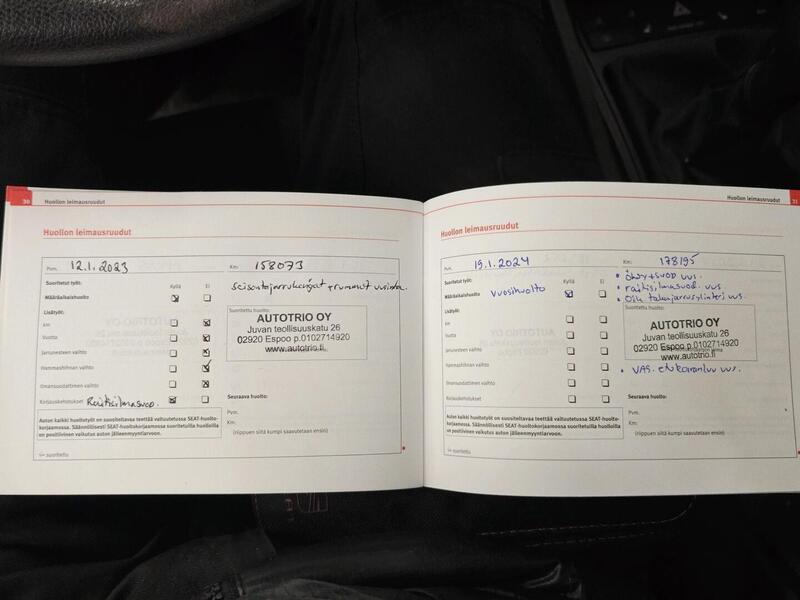 30
Huollon leimausruudut
Huollon leimausruudut
Pvm. 12.1.2023
Km: 158073
Suoritetut työt:
Kyllä
Ei
Määräaikaishuolto
seisontajarrukengät + rummut uusittu.
Lisätyöt:
Suoritettu huolto:
km
Vuotta
Jarrunesteen vaihto
Hammashihnan vaihto
Ilmansuodattimen vaihto
Korjauskehotukset Raitisilmasuod.
AUTOTRIO OY
Juvan teollisuuskatu 26
02920 Espoo p.0102714920
www.autotrio.fi
Seuraava huolto:
Pvm.
Km:
(riippuen siitä kumpi saavutetaan ensin)
Auton kaikki huoltotyöt on suositeltavaa teettää valtuutetussa SEAT-huolto-
korjaamossa. Säännöllisesti SEAT-huoltokorjaamossa suoritetuilla huolloilla
on positiivinen vaikutus auton jälleenmyyntiarvoon.
= suoritettu
Huollon leimausruudut
31
Huollon leimausruudut
Pvm. 19.1.2024
Km: 178195
Suoritetut työt:
Kyllä
Ei
Määräaikaishuolto vuosihuolto
• öljy + suod uus.
• raitisilmasuod. uus.
• Oik takajarrusylinteri uus.
Lisätyöt:
Suoritettu huolto:
km
Vuotta
Jarrunesteen vaihto
Hammashihnan vaihto
Ilmansuodattimen vaihto
Korjauskehotukset
AUTOTRIO OY
Juvan teollisuuskatu 26
02920 Espoo p.0102714920
www.autotrio.fi
• VAS. etukoiranluu uus.
Seuraava huolto:
Pvm.
Km:
(riippuen siitä kumpi saavutetaan ensin)
Auton kaikki huoltotyöt on suositeltavaa teettää valtuutetussa SEAT-huolto-
korjaamossa. Säännöllisesti SEAT-huoltokorjaamossa suoritetuilla huolloilla
on positiivinen vaikutus auton jälleenmyyntiarvoon.
= suoritettu